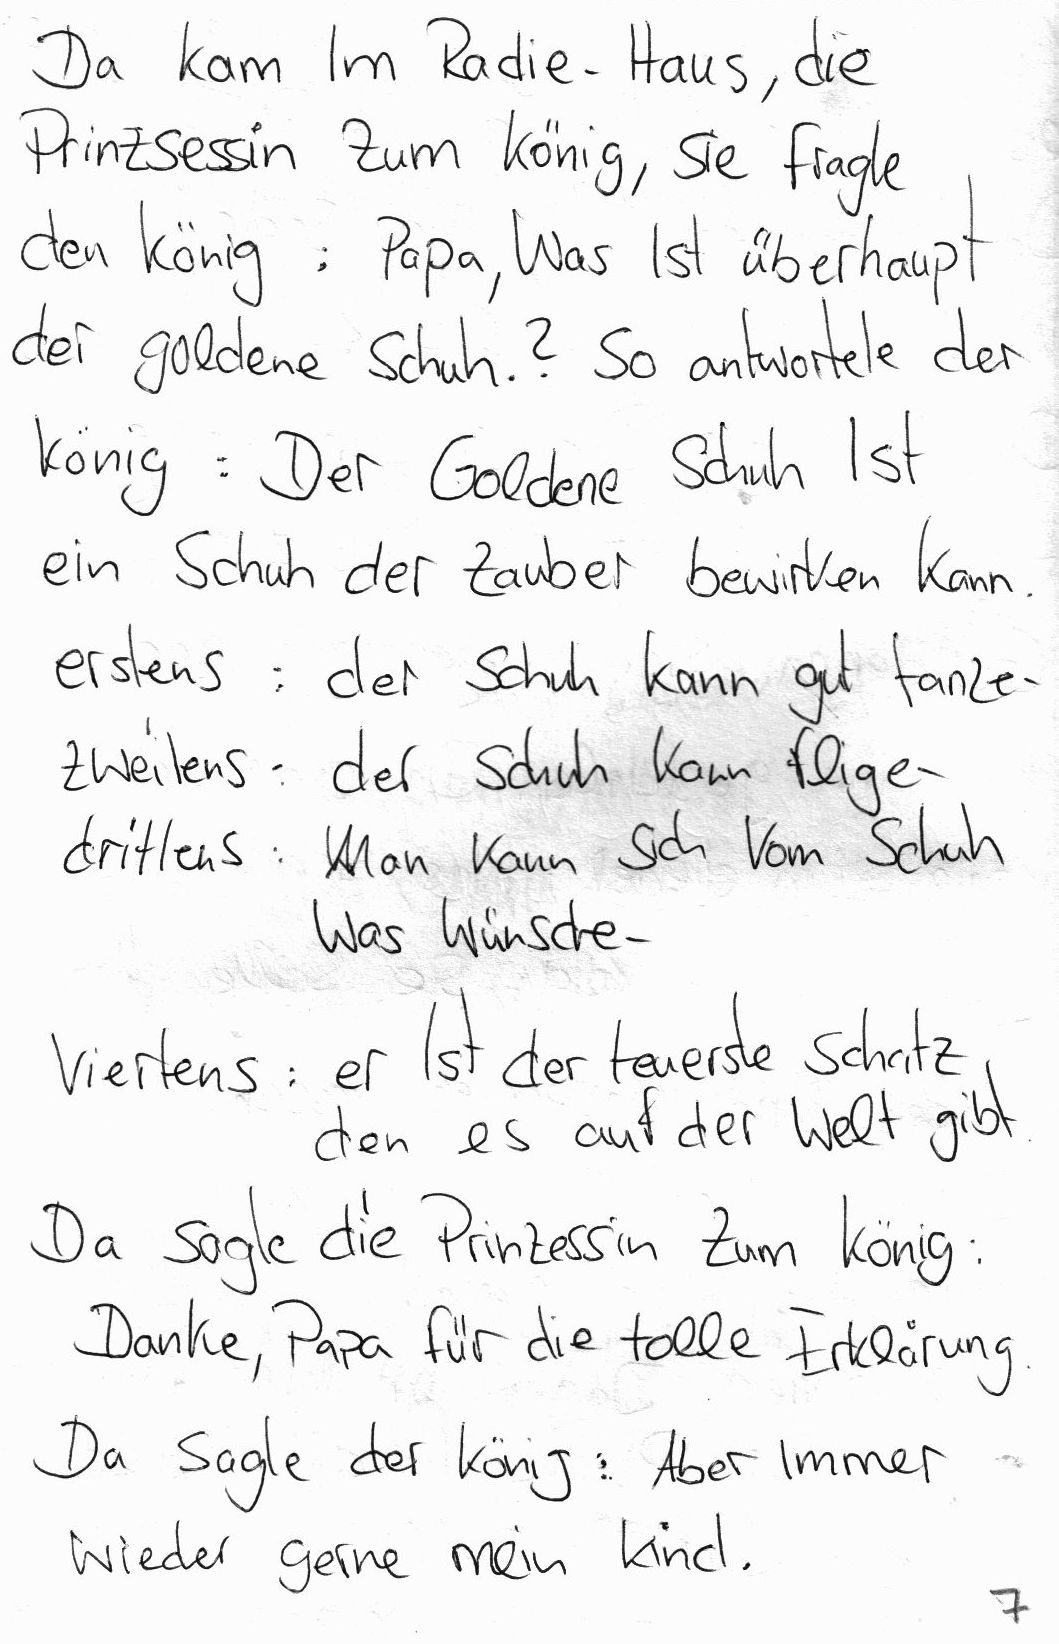 Da kam Im Radie-Haus, die
Prinzsessin zum könig, sie fragte
den könig : Papa, Was Ist überhaupt
der goldene Schuh.? So antwortete der
könig : Der Goldene Schuh Ist
ein Schuh der zauber bewirken kann.
erstens : der Schuh kann gut tanze-
zweitens : der Schuh kann flige-
drittens : Man kann sich Vom Schuh
Was Wünsche-
Viertens : er Ist der teuerste Schatz,
den es auf der Welt gibt.
Da sagte die Prinzessin zum könig :
Danke, Papa für die tolle Erklärung.
Da sagte der könig : Aber Immer
wieder gerne mein kind.
7